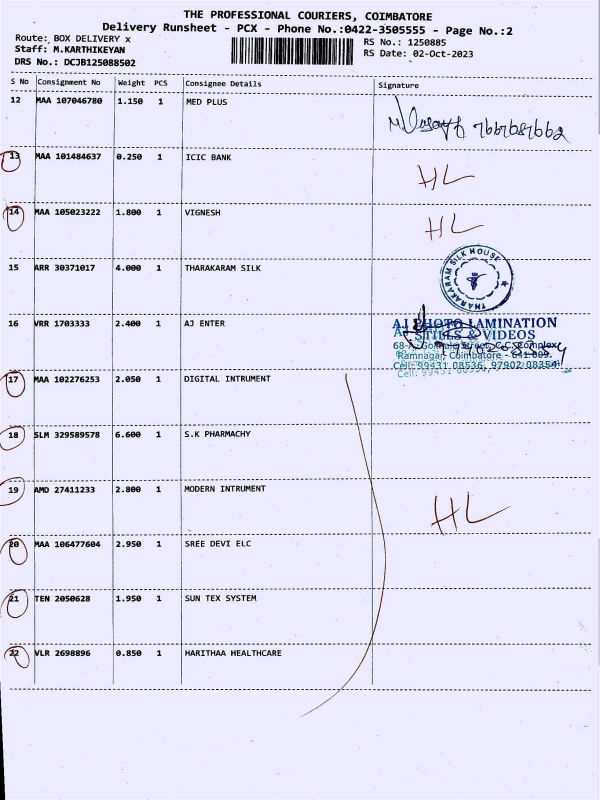 THE PROFESSIONAL COURIERS, COIMBATORE
Delivery Runsheet - PCX - Phone No.:0422-3505555 - Page No.:2
Route: BOX DELIVERY x
Staff: M.KARTHIKEYAN
DRS No.: DCJB125088502
RS No.: 1250885
RS Date: 02-Oct-2023
S No Consignment No Weight PCS Consignee Details Signature
12 MAA 107046780 1.150 1 MED PLUS
13 MAA 101484637 0.250 1 ICIC BANK
HL
14 MAA 105023222 1.800 1 VIGNESH
HL
15 ARR 30371017 4.000 1 THARAKARAM SILK
THARAKARAM SILK HOUSE
16 VRR 1703333 2.400 1 AJ ENTER
A.J PHOTO LAMINATION
STILLS & VIDEOS
Ramnagar, Coimbatore - 641 009.
Cell: 99431 08536, 97902 08354
17 MAA 102276253 2.050 1 DIGITAL INTRUMENT
18 SLM 329589578 6.600 1 S.K PHARMACHY
19 AMD 27411233 2.800 1 MODERN INTRUMENT
HL
20 MAA 106477604 2.950 1 SREE DEVI ELC
21 TEN 2050628 1.950 1 SUN TEX SYSTEM
22 VLR 2698896 0.850 1 HARITHAA HEALTHCARE